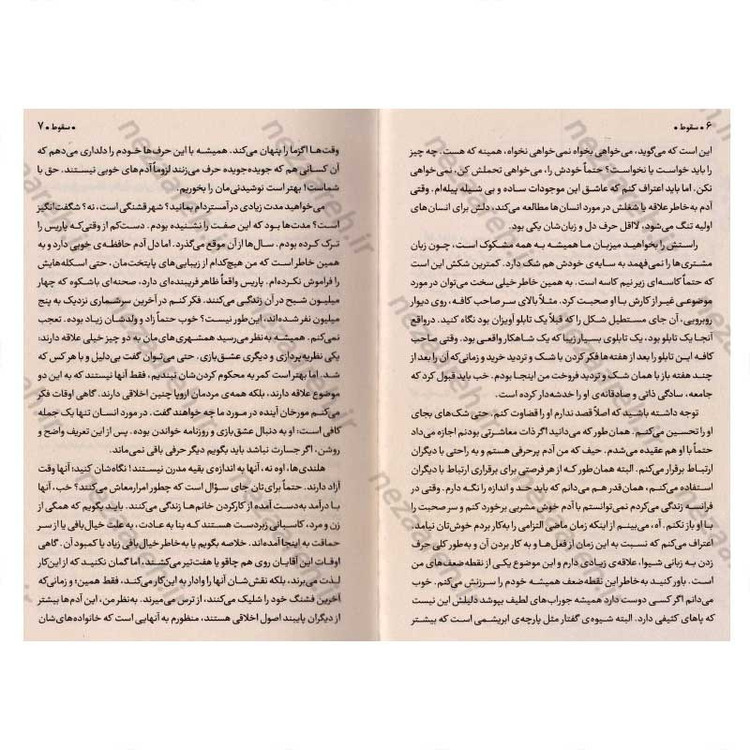 ۶ • سقوط •
این است که می‌گوید، می‌خواهی بخواه نمی‌خواهی نخواه، همینه که هست. چه چیز
را باید خواست یا نخواست؟ حتماً خودش را، می‌خواهی تحملش کن، نمی‌خواهی
نکن. اما باید اعتراف کنم که عاشق این موجودات ساده و بی شیله پیله‌ام. وقتی
آدم به‌خاطر علاقه یا شغلش در مورد انسان‌ها مطالعه می‌کند، دلش برای انسان‌های
اولیه تنگ می‌شود، لااقل حرف دل و زبان‌شان یکی بود.
راستش را بخواهید میزبان ما همیشه به همه مشکوک است، چون زبان
مشتری‌ها را نمی‌فهمد به سایه‌ی خودش هم شک دارد. کمترین شکش این است
که حتماً کاسه‌ای زیر نیم کاسه است. به همین خاطر خیلی سخت می‌توان در مورد
موضوعی غیر از کارش با او صحبت کرد. مثلاً بالای سر صاحب کافه، روی دیوار
روبرویی، آن جای مستطیل شکل را که قبلاً یک تابلو آویزان بود نگاه کنید. درواقع
آنجا یک تابلو بود، یک تابلوی بسیار زیبا که یک شاهکار واقعی بود. وقتی صاحب
کافه این تابلو را بعد از هفته‌ها فکر کردن با شک و تردید خرید و زمانی‌که آن را بعد از
چند هفته باز با همان شک و تردید فروخت من اینجا بودم. خب باید قبول کرد که
جامعه، سادگی ذاتی و صادقانه‌ی او را خدشه‌دار کرده است.
توجه داشته باشید که اصلاً قصد ندارم او را قضاوت کنم. حتی شک‌های بجای
او را تحسین می‌کنم. همان‌طور که می‌دانید اگر ذات معاشرتی بودنم اجازه می‌داد
حتماً با او هم عقیده می‌شدم. حیف که من آدم پرحرفی هستم و به راحتی با دیگران
ارتباط برقرار می‌کنم. البته همان‌طور که از هر فرصتی برای برقراری ارتباط با دیگران
استفاده می‌کنم، همان قدر هم می‌دانم که باید حد و اندازه را نگه دارم. وقتی در
فرانسه زندگی می‌کردم نمی‌توانستم با آدم خوش مشربی برخورد کنم و سر صحبت را
با او باز نکنم. آه، می‌بینم از اینکه زمان ماضی التزامی را به‌کار بردم خوش‌تان نیامد.
اعتراف می‌کنم که نسبت به این زمان از فعل‌ها و به کار بردن آن و به‌طور کلی حرف
زدن به زبانی شیوا، علاقه‌ی زیادی دارم و این موضوع یکی از نقطه‌ضعف‌های من
است. باور کنید به‌خاطر این نقطه‌ضعف همیشه خودم را سرزنش می‌کنم. خوب
می‌دانم اگر کسی دوست دارد همیشه جوراب‌های لطیف بپوشد دلیلش این نیست
که پاهای کثیفی دارد. البته شیوه‌ی گفتار مثل پارچه‌ی ابریشمی است که بیشتر
• سقوط • ۷
وقت‌ها اگزما را پنهان می‌کند. همیشه با این حرف‌ها خودم را دلداری می‌دهم که
آن کسانی هم که جویده‌جویده حرف می‌زنند لزوماً آدم‌های خوبی نیستند. حق با
شماست؛ بهتر است نوشیدنی‌مان را بخوریم.
می‌خواهید مدت زیادی در آمستردام بمانید؟ شهر قشنگی است، نه؟ شگفت‌انگیز
است؟ مدت‌ها بود که این صفت را نشنیده بودم. دست‌کم از وقتی‌که پاریس را
ترک کرده بودم. سال‌ها از آن موقع می‌گذرد. اما دل آدم حافظه‌ی خوبی دارد و به
همین خاطر است که من هیچ‌کدام از زیبایی‌های پایتخت‌مان، حتی اسکله‌هایش
را فراموش نکرده‌ام. پاریس واقعاً ظاهر فریبنده‌ای دارد، صحنه‌ای باشکوه که چهار
میلیون شبح در آن زندگی می‌کنند. فکر کنم در آخرین سرشماری نزدیک به پنج
میلیون نفر شده‌اند، این‌طور نیست؟ خوب حتماً زاد و ولدشان زیاد بوده. تعجب
نمی‌کنم. همیشه به نظر می‌رسید همشهری‌های مان به دو چیز خیلی علاقه دارند:
یکی نظریه پردازی و دیگری عشق‌بازی. حتی می‌توان گفت بی‌دلیل و با هر کس که
شد. اما بهتر است کمر به محکوم کردن‌شان نبندیم، فقط آنها نیستند که به این دو
موضوع علاقه دارند، بلکه همه‌ی مردمان اروپا چنین اخلاقی دارند. گاهی اوقات فکر
می‌کنم مورخان آینده در مورد ما چه خواهند گفت. در مورد انسان تنها یک جمله
کافی است: او به دنبال عشق‌بازی و روزنامه خواندن بوده. پس از این تعریف واضح و
روشن، اگر جسارت نباشد باید بگویم دیگر حرفی باقی نمی‌ماند.
هلندی‌ها، اوه نه، آنها به اندازه‌ی بقیه مدرن نیستند! نگاه‌شان کنید؛ آنها وقت
آزاد دارند. حتماً برای‌تان جای سؤال است که چطور امرارمعاش می‌کنند؟ خب، آنها
با درآمد به‌دست آمده از کارکردن خانم‌ها زندگی می‌کنند. باید بگویم که همگی از
زن و مرد، کاسبانی زبردست هستند که بنا به عادت، به علت خیال‌بافی یا از سر
حماقت به اینجا آمده‌اند. خلاصه بگویم یا به خاطر خیال‌بافی زیاد یا کمبود آن. گاهی
اوقات این آقایان روی هم چاقو یا هفت‌تیر می‌کشند، اما گمان نکنید که از این‌کار
لذت می‌برند، بلکه نقش‌شان آنها را وادار به این‌کار می‌کند، فقط همین؛ و زمانی‌که
آخرین فشنگ خود را شلیک می‌کنند، از ترس می‌میرند. به‌نظر من، این آدم‌ها بیشتر
از دیگران پایبند اصول اخلاقی هستند، منظورم به آنهایی است که خانواده‌های‌شان
nezaareh.ir